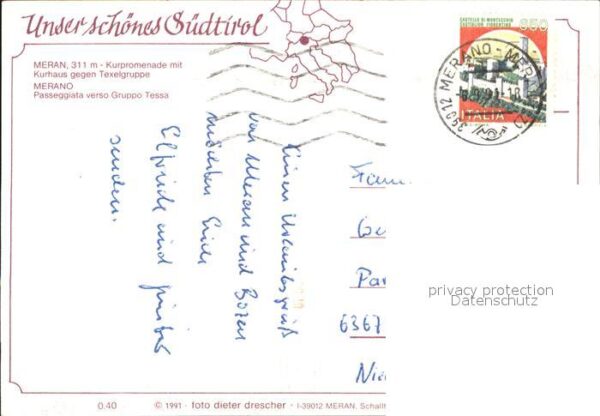 Unser schönes Südtirol
MERAN, 311 m - Kurpromenade mit
Kurhaus gegen Texelgruppe
MERANO
Passeggiata verso Gruppo Tessa
CASTELLO DI MONTECCHIO
CASTIGLION FIORENTINO
650
ITALIA
MERANO - MERAN
39012
Einen Urlaubsgruß
von Meran und Bozen
möchten Euch
Elfriede und Günter
senden.
Fam
Ge
Par
6367
Nie
privacy protection
Datenschutz
0.40
© 1991 · foto dieter drescher · I-39012 MERAN, Schaff